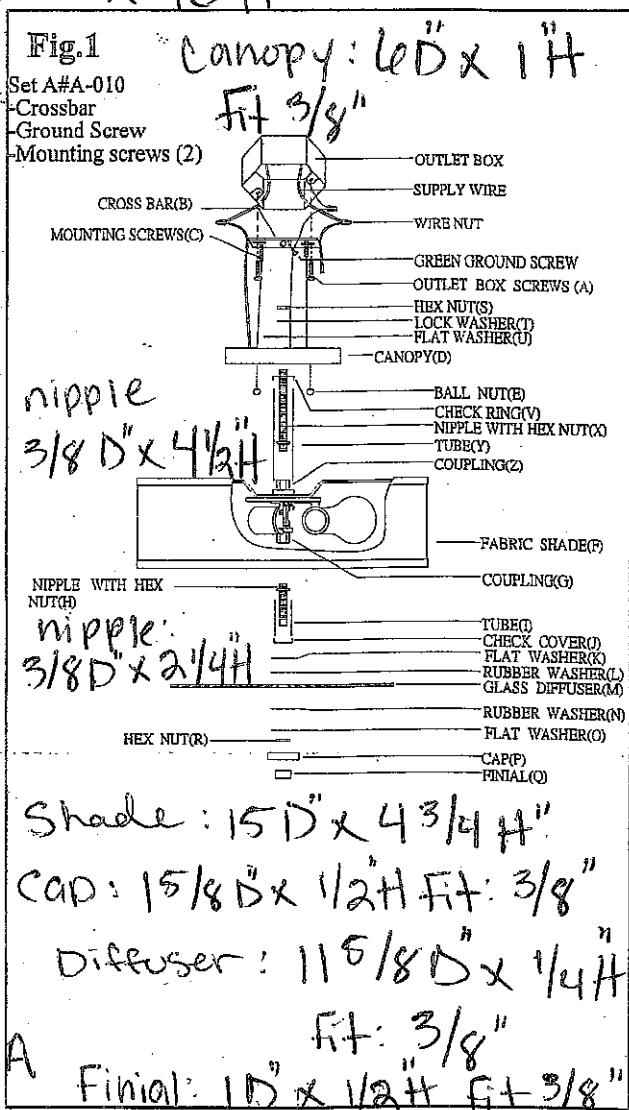 Fig.1
Canopy: 6D" x 1"H
Set A#A-010
Fit 3/8"
-Crossbar
-Ground Screw
-Mounting screws (2)
OUTLET BOX
SUPPLY WIRE
CROSS BAR(B)
WIRE NUT
MOUNTING SCREWS(C)
GREEN GROUND SCREW
OUTLET BOX SCREWS (A)
HEX NUT(S)
LOCK WASHER(T)
FLAT WASHER(U)
CANOPY(D)
nipple
3/8 D" x 4 1/2"H
BALL NUT(E)
CHECK RING(V)
NIPPLE WITH HEX NUT(X)
TUBE(Y)
COUPLING(Z)
FABRIC SHADE(F)
COUPLING(G)
NIPPLE WITH HEX
NUT(H)
nipple:
3/8D" x 2 1/4"H
TUBE(I)
CHECK COVER(J)
FLAT WASHER(K)
RUBBER WASHER(L)
GLASS DIFFUSER(M)
RUBBER WASHER(N)
FLAT WASHER(O)
HEX NUT(R)
CAP(P)
FINIAL(Q)
Shade: 15 D" x 4 3/4 H"
Cap: 1 5/8 D" x 1/2"H Fit: 3/8"
Diffuser: 11 5/8 D" x 1/4"H
Fit: 3/8"
A
Finial: 1D" x 1/2"H Fit 3/8"